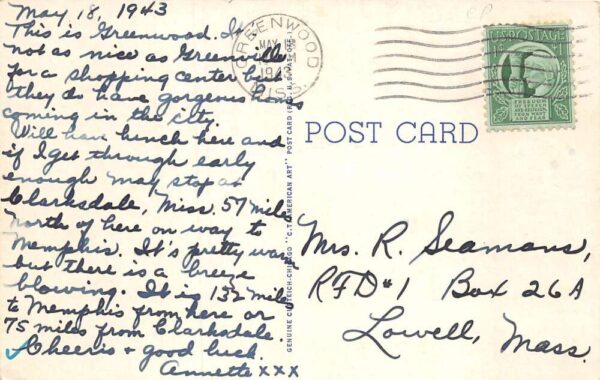 May 18, 1943
This is Greenwood. It
not as nice as Greenville
for a shopping center but
they do have gorgeous homes
coming in the city.
Will have lunch here and
if I get through early
enough may stop at
Clarksdale, Miss. 57 miles
north of here on way to
Memphis. It's pretty warm
but there is a breeze
blowing. It is 132 miles
to Memphis from here or
75 miles from Clarksdale.
Cheerio & good luck.
Annette xxx
GREENWOOD
MAY
MISS.
GENUINE CURTEICH-CHICAGO "C.T. AMERICAN ART" POST CARD (REG. U.S. PAT. OFF.)
POST CARD
U.S. POSTAGE
FREEDOM
Mrs. R. Seamans,
RFD #1 Box 26A
Lowell, Mass.